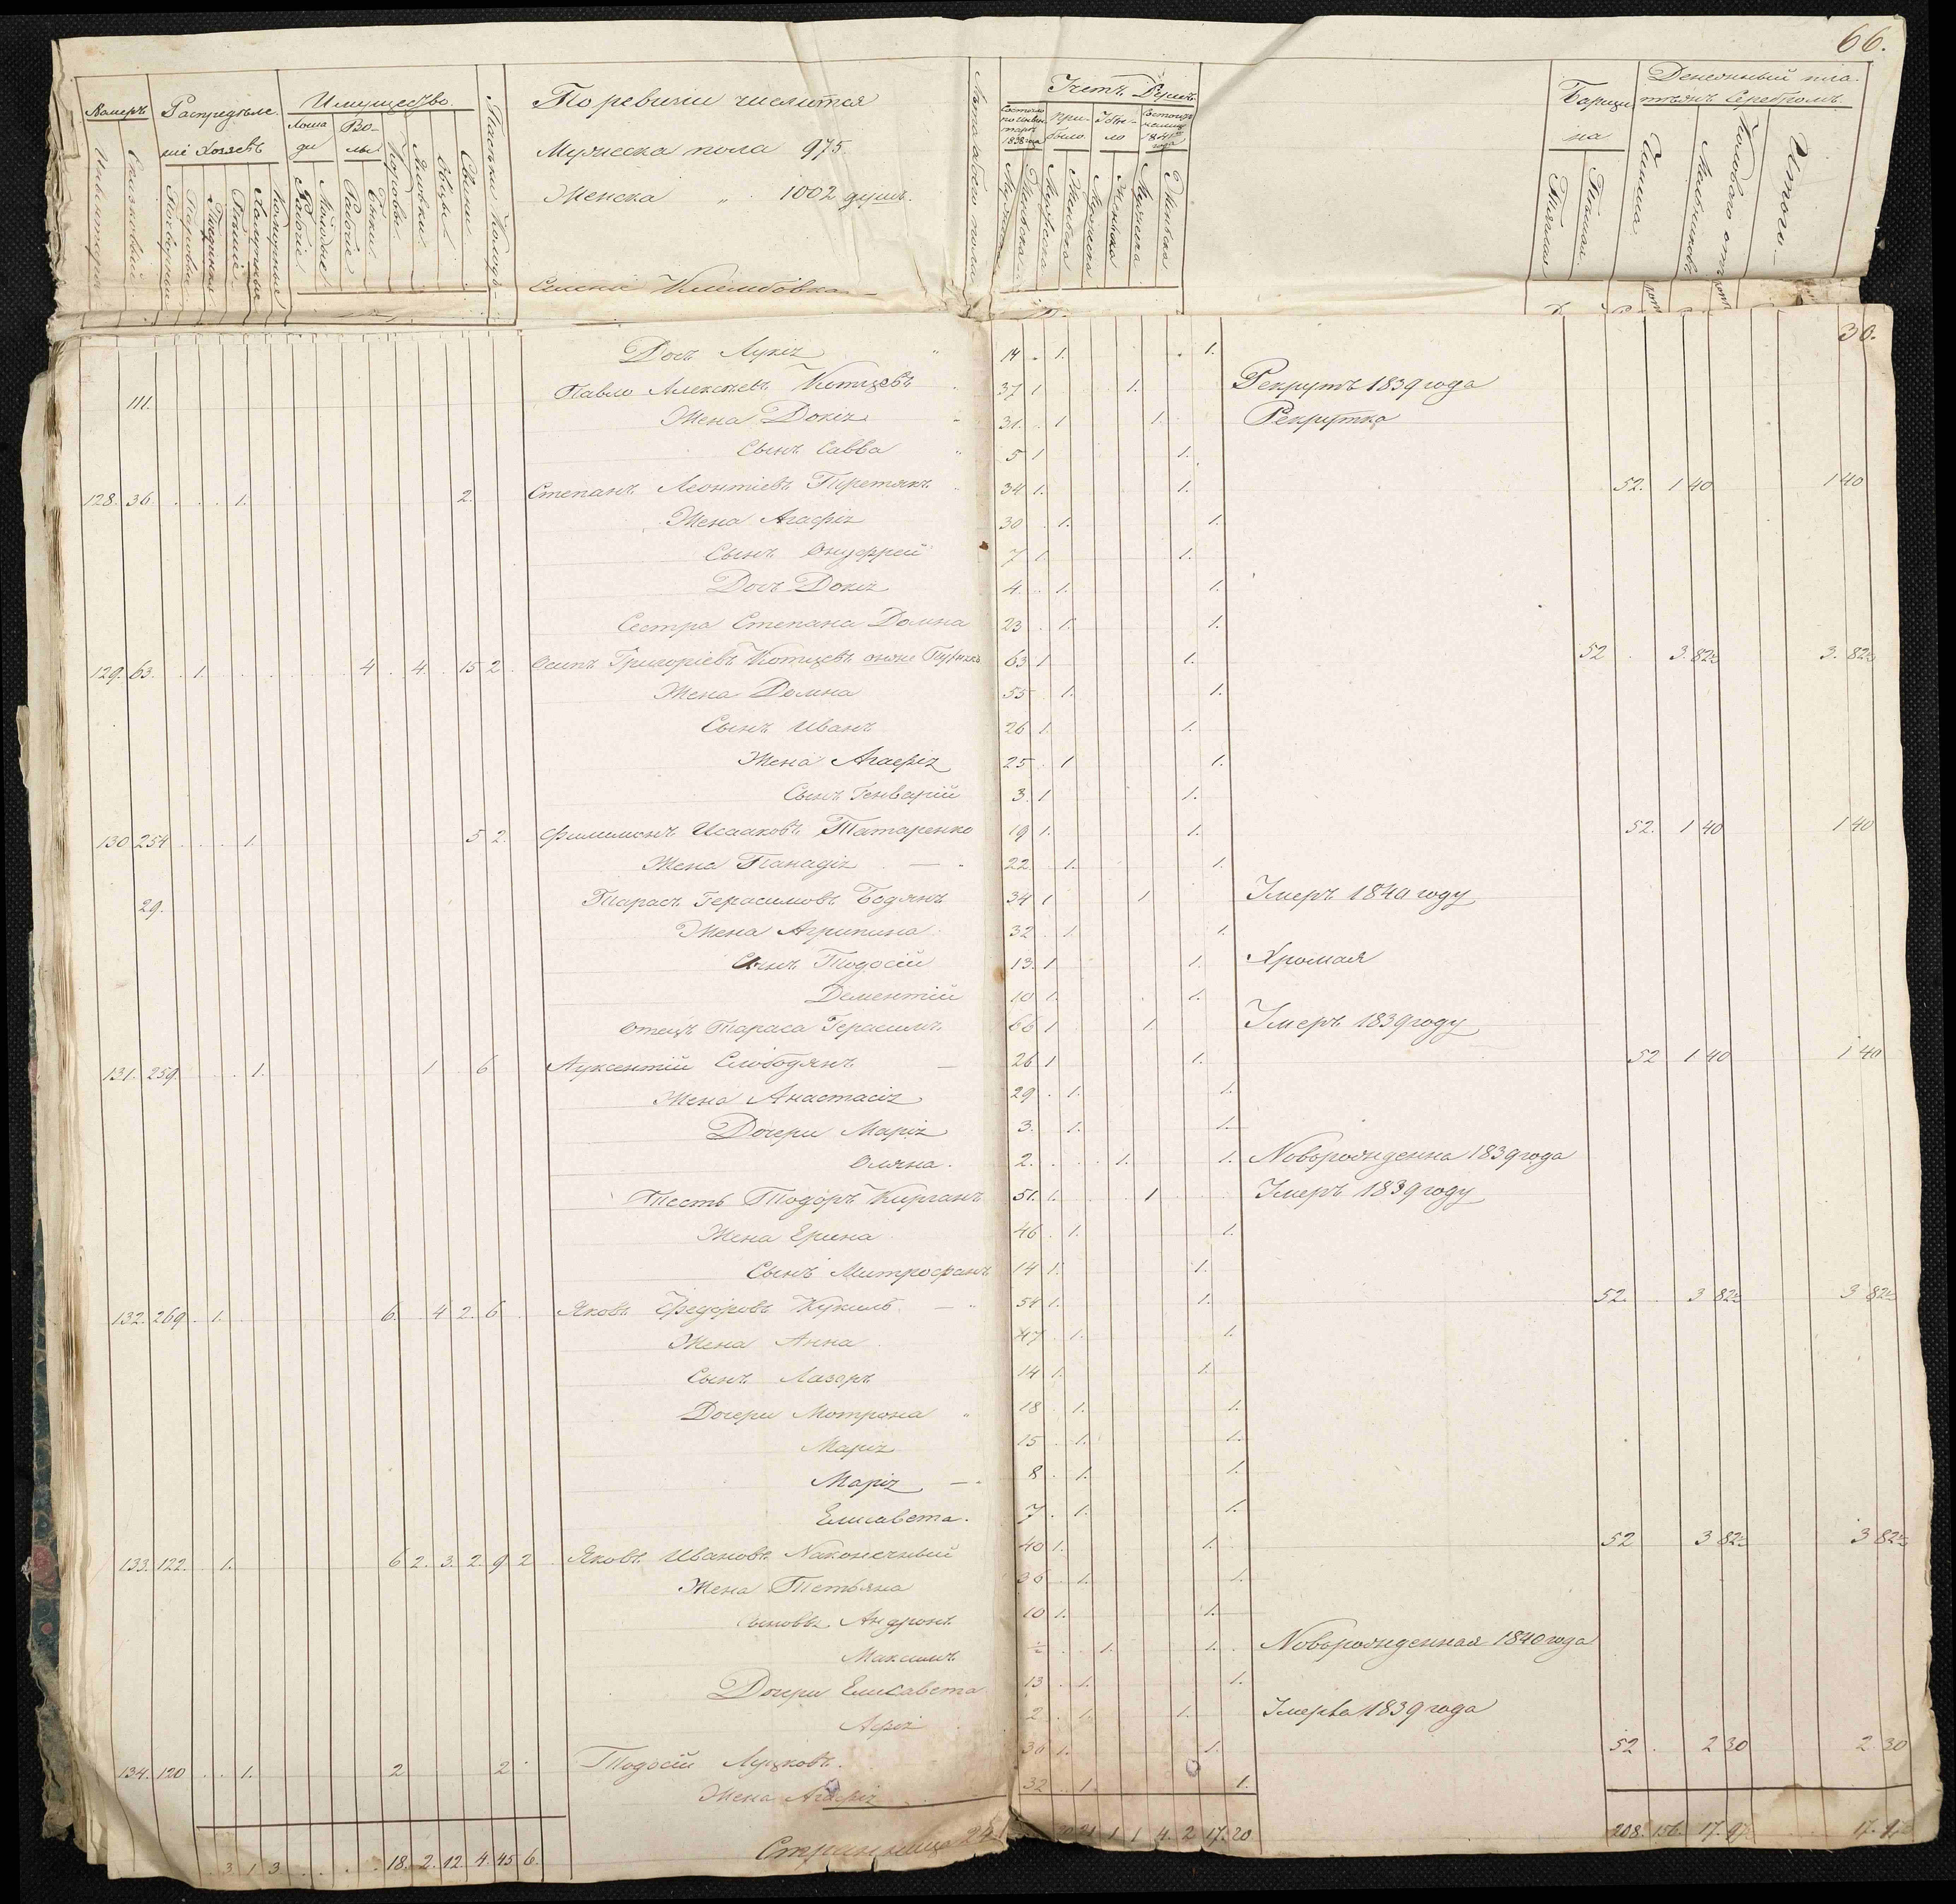 66.
Намеръ Распредѣле- Имущество. По ревизіи числится Учетъ Душъ Барщи- Денежный пла-
ніе Хозяевъ Лоша- Во- Состояло по Инвен- таръ 1838 года При- Убы- Состоитъ налицо 1841 года на тежъ Серебромъ
ди лы было ло
Мужеска пола 975
Женска " 1002 душъ.
Инвентарн Рабочіе Молодые Рабочіе Быки Коровы Яловки Овцы Свини Лѣта обоего пола Мужеска Женска Мужеска Женска Мужеска Женска Мужеска Женска Тяглая Пѣшая Чинша Итого
30.
Дочъ Лукія " 14 . 1. . 1.
111. Павло Алексѣевъ Котцевъ 37 1 1. Рекрутъ 1839 года
Жена Докія 31. . 1 1. Рекрутка
Сынъ Савва " 5 1 1.
128. 36 . . . 1. 2. Степанъ Леонтіевъ Третякъ 34 1. 1. 52. 1 40 1 40
Жена Агафія 30 . 1. 1.
Сынъ Онуфрей 7 1. 1.
Дочъ Докія 4. . 1. 1.
Сестра Степана Домна 23 . 1. 1.
129. 63. . 1. 4 . 4. . 15 2 . Осипъ Григоріевъ Котцевъ онже 63 1 1. 52 . 3. 82½ 3. 82½
Жена Домна 55 . 1. 1.
Сынъ Иванъ 26 1. 1.
Жена Агафія 25 . 1 1.
Сынъ Генварій 3. 1 1.
130 254 . . . 1. 5 2. Филимонъ Исааковъ Татаренко 19 1. 1. 52. 1 40 1 40
Жена Панадія — 22. . 1. 1.
29. Тарасъ Герасимовъ Бодянъ 34 1 1 Умеръ 1840 году
Жена Агрипина 32 . 1. 1.
Сынъ Тодосій 13. 1 1. Хромая
Дементій 10 1. 1.
Отецъ Тараса Герасимъ 66 1 1. Умеръ 1839 году
131. 259. . . . 1. 1 . 6 Луксентій Слободянъ — 26 1 1. 52 1 40 1 40
Жена Анастасія 29 . 1. 1.
Дочери Марія 3. . 1. 1.
Оляна. 2. . . . 1. 1. Новорожденна 1839 года
Тесть Тодоръ Курганъ 51. 1. 1 Умеръ 1839 году
Жена Ерина 46 . 1. 1.
Сынъ Митрофанъ 14 1. 1.
132. 269 . 1. 6. . 4 2. 6 . Яковъ Федоровъ Кукиль — " 54 1. 1. 52. . 3 82½ 3 82½
Жена Анна 47 . 1. 1.
Сынъ Лазоръ 14 1. 1.
Дочери Мотрона " 18 . 1. 1.
Марія 15 . 1. 1.
Марія — 8 . 1. 1.
Елисавета. 7 . 1. 1.
133. 122. . 1. 6 2. 3. 2. 9 2 . Яковъ Ивановъ Наконечный 40 1. 1. 52 3 82½ 3 82½
Жена Тетьяна 36 . 1. 1.
Сыновья Андронъ 10 1. 1.
Максимъ ½ . . 1. 1. Новорожденная 1840 года
Дочери Елисавета 13 . 1. 1.
2 . 1. 1. Умерла 1839 года
134. 120 . . 1. 2 2 Тодосій Луцковъ. 36 1. 1. 52 . 2 30 2 30
Жена Агафія 32 . 1. 1.
. 3 1 3 . . . . 18. 2. 12. 4. 45 6. Страница 20 21 1 1 4. 2 17. 20 208. 156. 17. 97½ 17. 97½